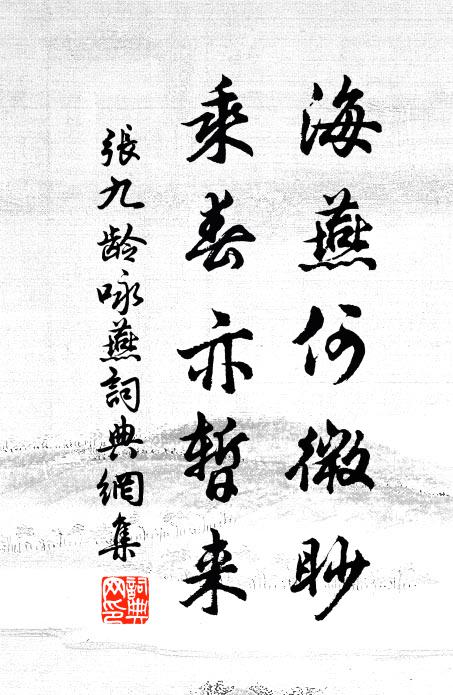 海燕何微眇
乘春亦暂来
張九龄咏燕詞典網集
詞典网印